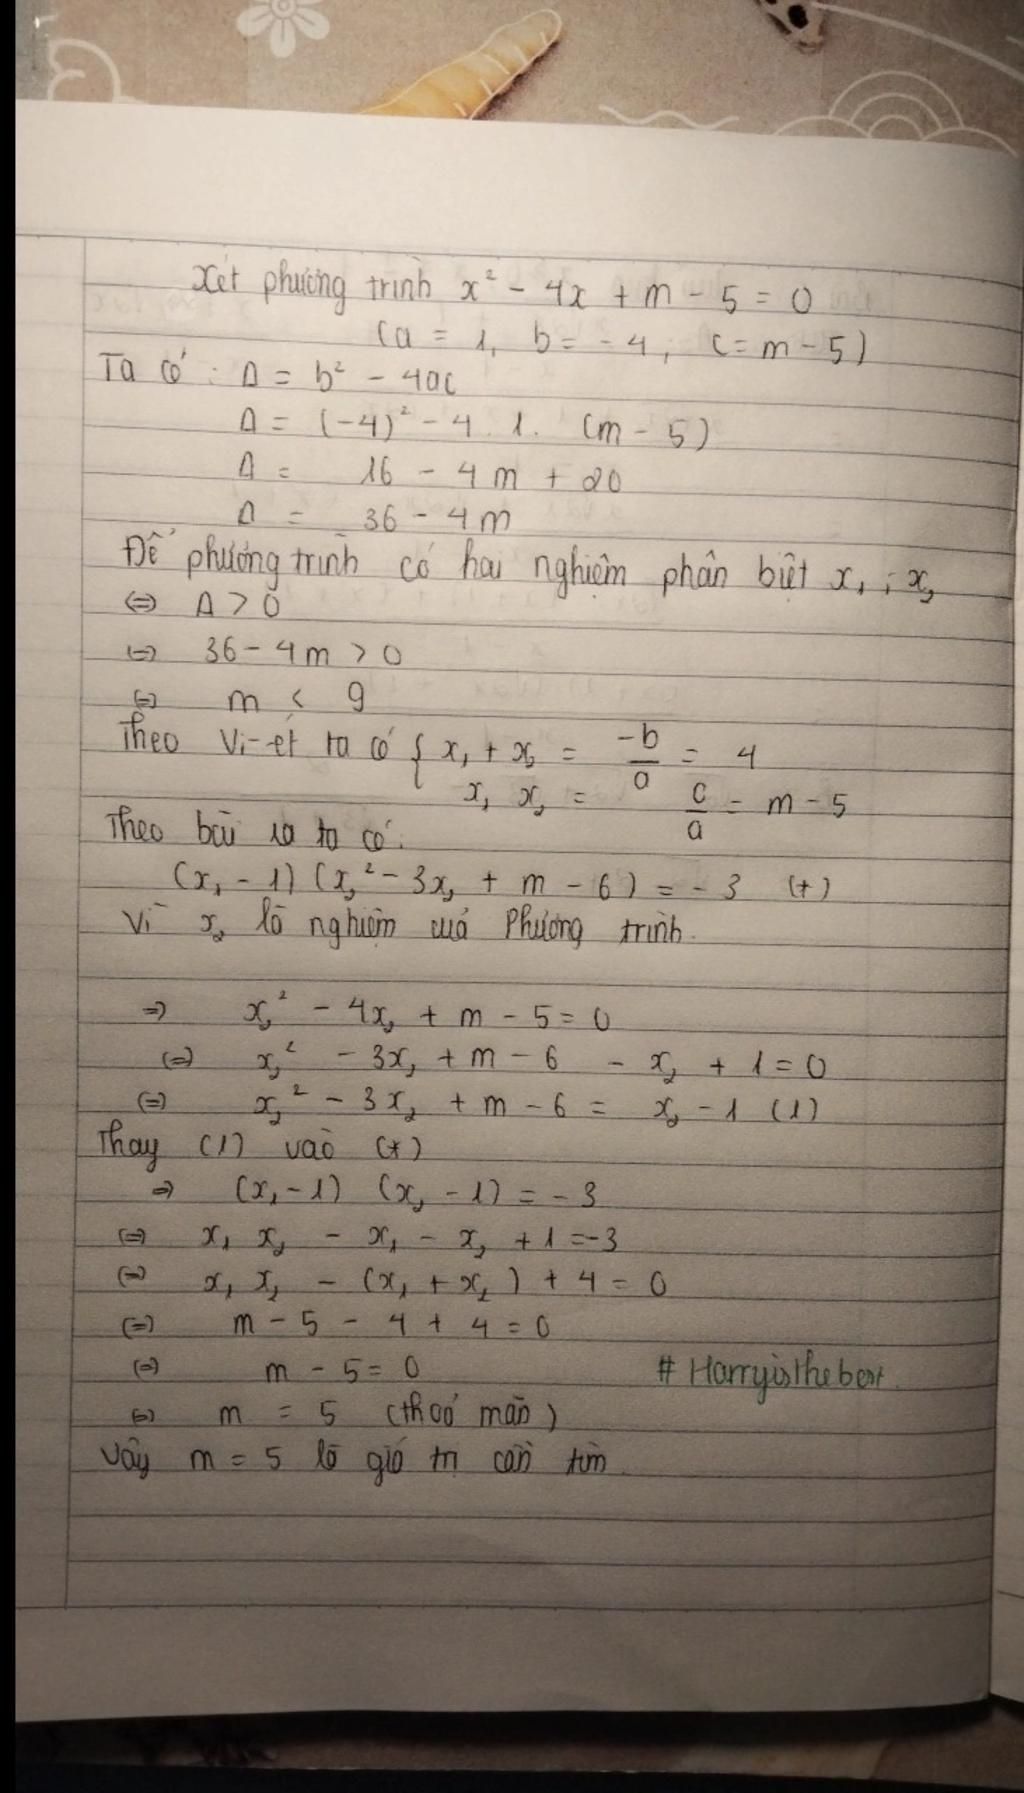 Xét phương trình x² - 4x + m - 5 = 0
(a = 1, b = -4, c = m - 5)
Ta có: Δ = b² - 4ac
Δ = (-4)² - 4. 1. (m - 5)
Δ = 16 - 4m + 20
Δ = 36 - 4m
Để phương trình có hai nghiệm phân biệt x₁ ; x₂
⇔ Δ > 0
⇔ 36 - 4m > 0
⇔ m < 9
Theo Vi-ét ta có { x₁ + x₂ = -b/a = 4
x₁ x₂ = c/a = m - 5
Theo bài ra ta có:
(x₁ - 1) (x₂² - 3x₂ + m - 6) = - 3 (*)
Vì x₂ là nghiệm cuả Phương trình.
⇒ x₂² - 4x₂ + m - 5 = 0
⇔ x₂² - 3x₂ + m - 6 - x₂ + 1 = 0
⇔ x₂² - 3x₂ + m - 6 = x₂ - 1 (1)
Thay (1) vào (*)
⇒ (x₁ - 1) (x₂ - 1) = - 3
⇔ x₁ x₂ - x₁ - x₂ + 1 = -3
⇔ x₁ x₂ - (x₁ + x₂) + 4 = 0
⇔ m - 5 - 4 + 4 = 0
⇔ m - 5 = 0 # Harryisthebest.
⇔ m = 5 (thoả mãn)
Vậy m = 5 là giá trị cần tìm